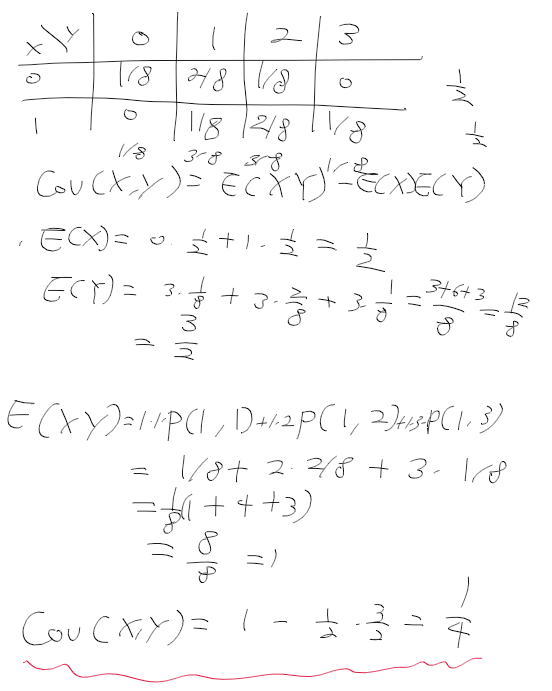 X\Y 0 1 2 3
0 1/8 2/8 1/8 0 1/2
1 0 1/8 2/8 1/8 1/2
1/8 3/8 3/8 1/8
Cov(X,Y) = E(XY) - E(X)E(Y)
E(X) = 0·1/2 + 1·1/2 = 1/2
E(Y) = 3·1/8 + 3·2/8 + 3·1/8 = (3+6+3)/8 = 12/8
= 3/2
E(XY) = 1·1·P(1,1) + 1·2P(1,2) + 1·3·P(1,3)
= 1/8 + 2·2/8 + 3·1/8
= 1/8(1+4+3)
= 8/8 = 1
Cov(X,Y) = 1 - 1/2·3/2 = 1/4